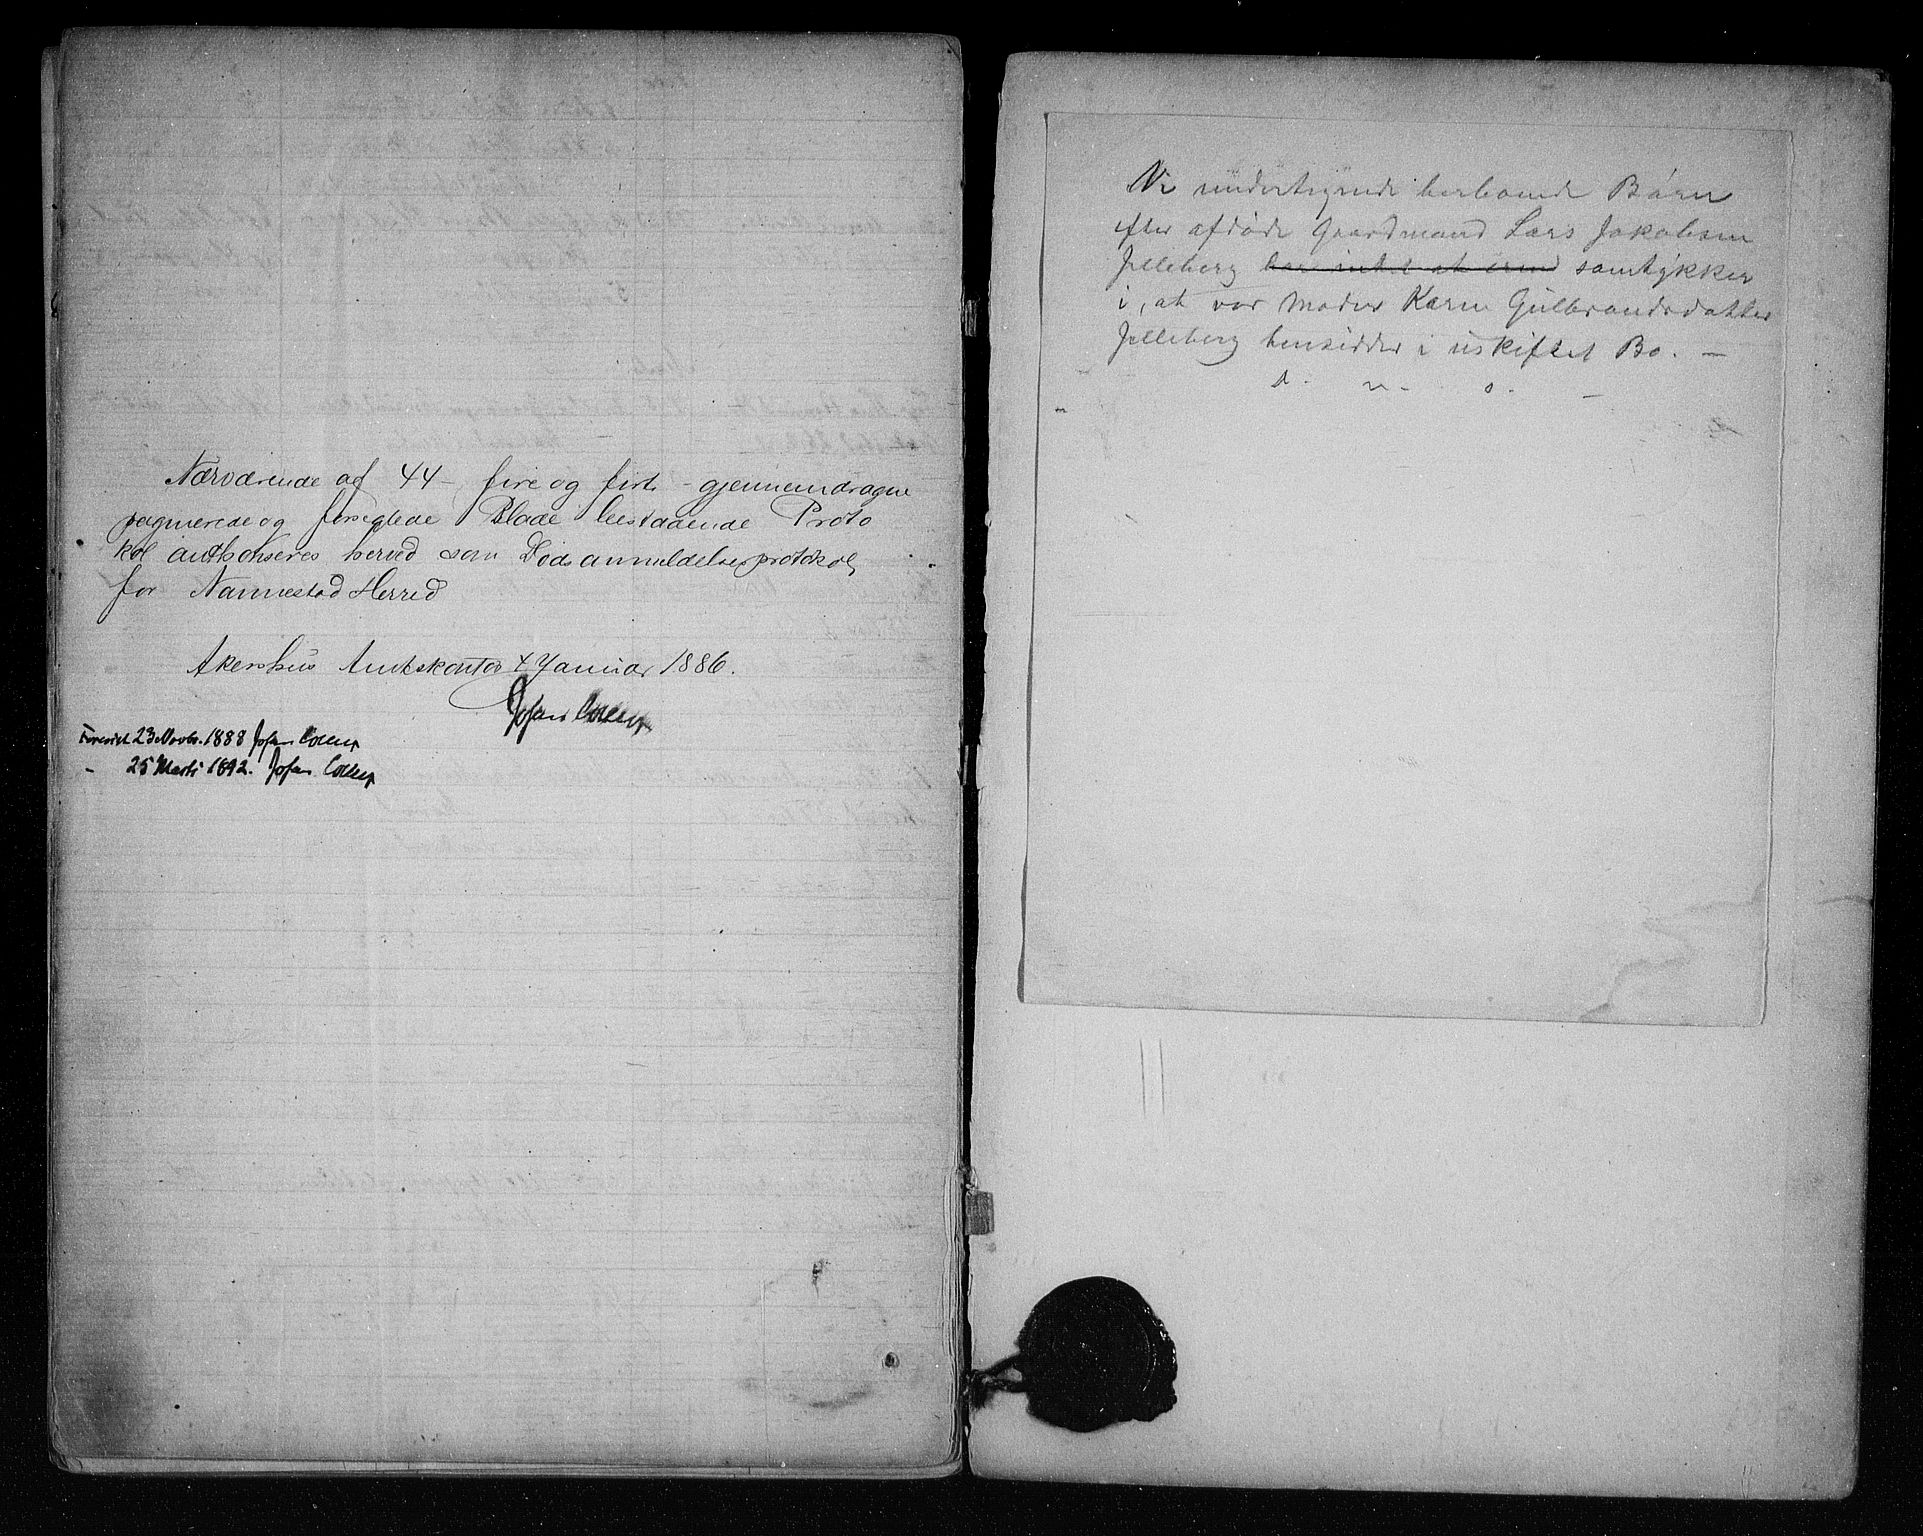 Nærværende af 44 - fire og firti - gjennemdragne
paginerede og forseglede Blade bestaaende Proto
kol authoriseres herved som Dødsanmeldelsesprotokol
for Nannestad Herred
Akershus Amtskontor 4 Januar 1886.
Johan Collett
Forevist 23 Novbr. 1888 Johan Collett
- 25 Marts 1892. Johan Collett
Vi undertegnede herboende Børn
efter afdøde Gaardmand Lars Jakobsen
Jelleberg har intet at erind samtykker
i, at vor Moder Karen Gulbrandsdatter
Jelleberg hensidder i uskiftet Bo. —
d. u. s. —